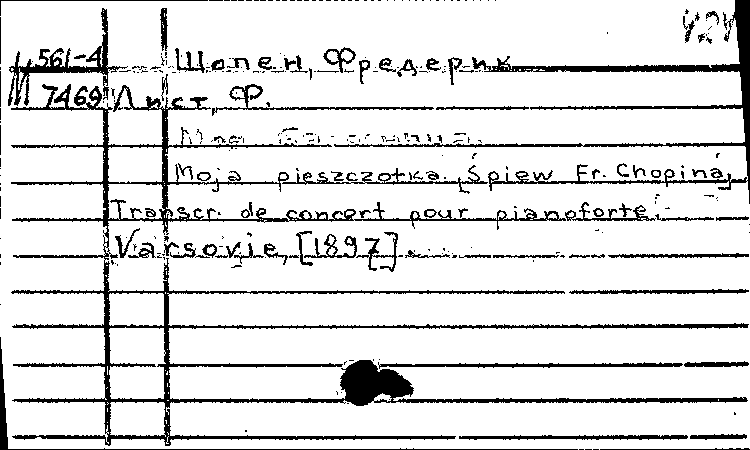 424
М 561-4 Шопен, Фредерик
7469 Лист, Ф.
Моя
Moja pieszczotka. [Śpiew Fr. Chopina]
Transcr. de concert pour pianoforte.
Varsovie, [1897].